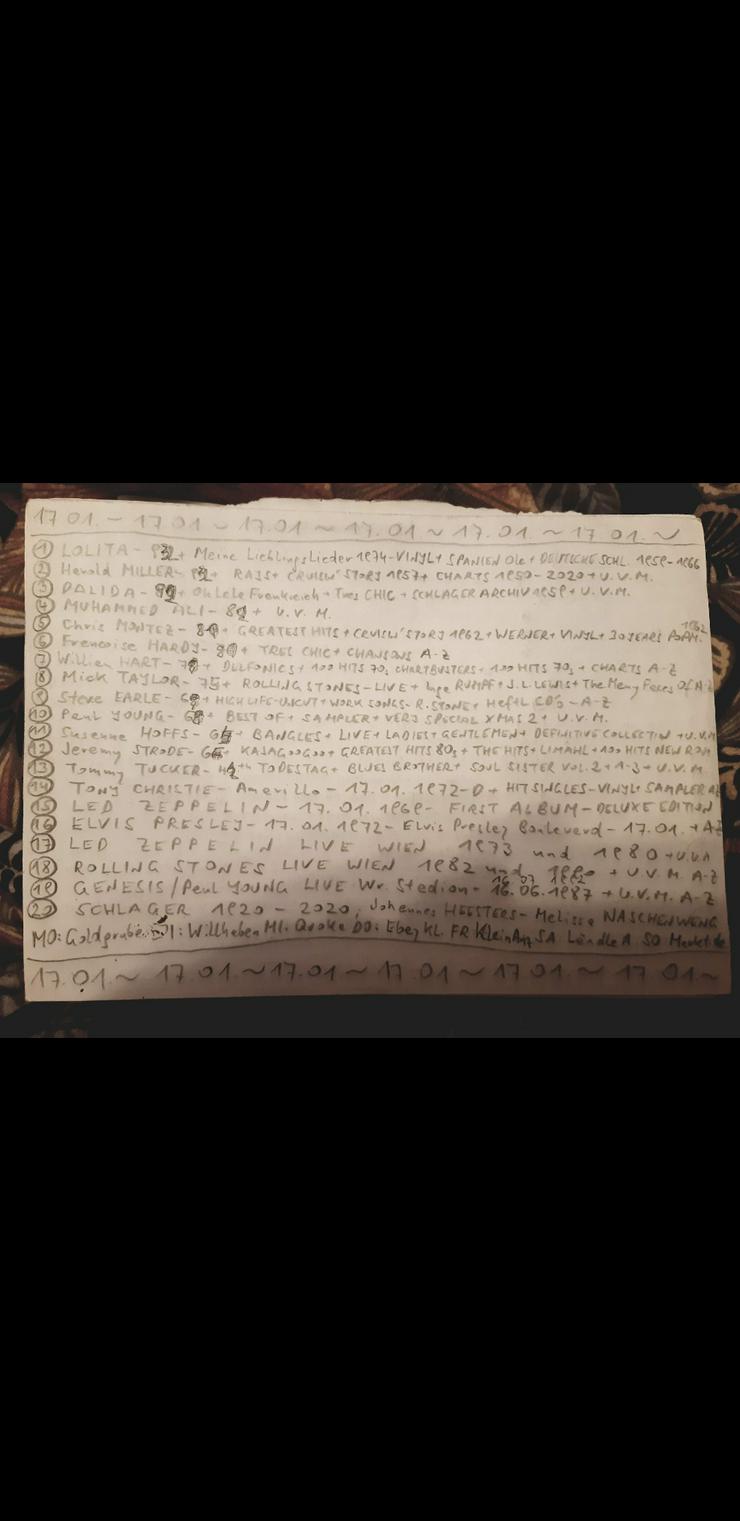 17 01. ~ 17 01 ~ 17.01 ~ 17.01 ~ 17.01. ~ 17 01. ~
① LOLITA - + Meine LieblingsLieder 1974 - VINYL + SPANIEN Ole + DEUTSCHE SCHL. 1959 - 1966
② Herold MILLER - + RAYS + CRUISIN' STORY 1957 + CHARTS 1950 - 2020 + U.V.M.
③ DALIDA - + Oh LeLe Frankreich + Tres CHIC + SCHLAGER ARCHIV 1959 + U.V.M.
④ MUHAMMED ALI - + U.V.M.
⑤ Chris MONTEZ - + GREATEST HITS + CRUISIN' STORY 1962 + WERNER + VINYL + 30 YEARS 1962
⑥ Francoise HARDY - + TRES CHIC + CHANSONS A-Z
⑦ William HART - + DELFONICS + 100 HITS 70s CHARTBUSTERS + 100 HITS 70s + CHARTS A-Z
⑧ Mick TAYLOR - 75 + ROLLING STONES - LIVE + Inga RUMPF + J.L. LEWIS + The Many Faces Of A-Z
⑨ Steve EARLE - + HIGH LIFE - UNCUT + WORK SONGS - R. STONE + Heftl CD's - A-Z
⑩ Paul YOUNG - + BEST OF + SAMPLER + VERY SPECIAL XMAS 2 + U.V.M.
⑪ Susanne HOFFS - + BANGLES + LIVE + LADIES + GENTLEMEN + DEFINITIVE COLLECTION + U.V.M
⑫ Jeremy STRODE - + KAJAGOOGOO + GREATEST HITS 80s + THE HITS + LIMAHL + 100 HITS NEW ROM
⑬ Tommy TUCKER - TODESTAG + BLUES BROTHER + SOUL SISTER VOL. 2 + 1-3 + U.V.M.
⑭ TONY CHRISTIE - Amarillo - 17.01.1972 - D + HIT SINGLES - VINYL + SAMPLER AZ
⑮ LED ZEPPELIN - 17.01.1969 - FIRST ALBUM - DELUXE EDITION
⑯ ELVIS PRESLEY - 17.01.1972 - Elvis Presley Boulevard - 17.01. + AZ
⑰ LED ZEPPELIN LIVE WIEN 1973 und 1980 + U.V.M
⑱ ROLLING STONES LIVE WIEN 1982 und 1990 + U.V.M. A-Z
⑲ GENESIS / Paul YOUNG LIVE Wr. Stadion - 18.06.1987 + U.V.M. A-Z
⑳ SCHLAGER 1920 - 2020, Johannes HEESTERS - Melissa NASCHENWENG
MO: Goldgrube DI: Willhaben MI. Quoka DO: Ebay KL. FR KleinAnz SA Ländle A. SO Markt.de
17.01 ~ 17 01 ~ 17.01 ~ 17 01 ~ 17 01 ~ 17 01 ~